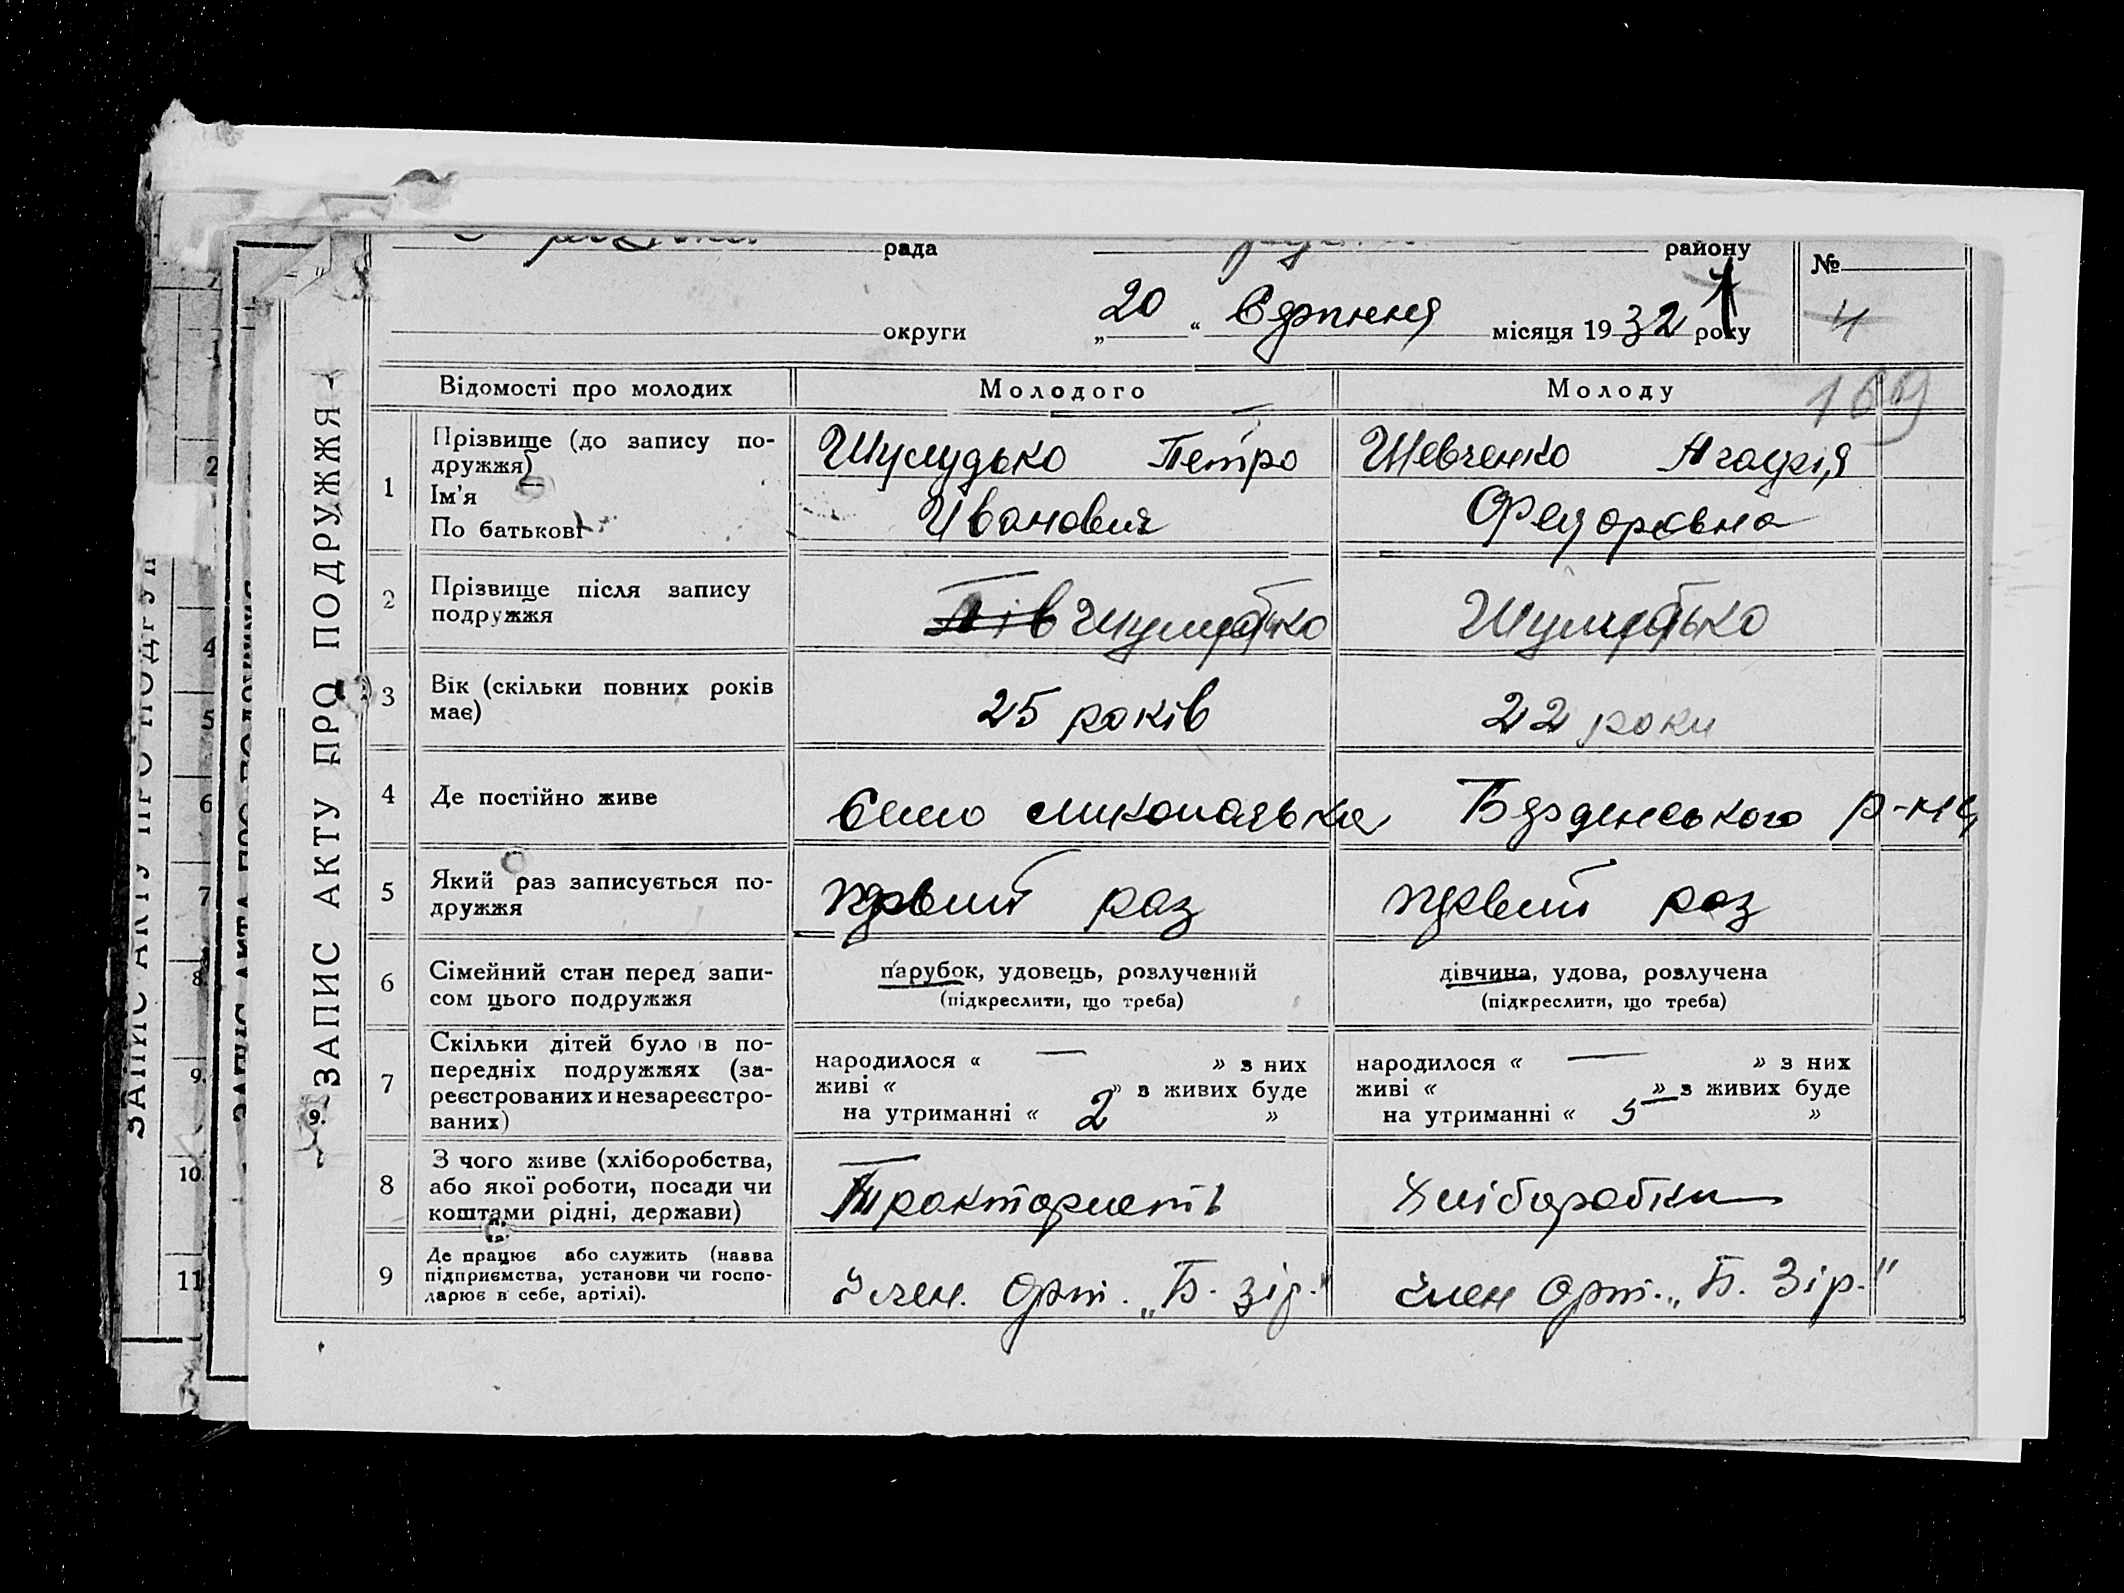 рада
району
№
округи
„20“ Серпння місяця 1932 року
4
Відомості про молодих
Молодого
Молоду
169
ЗАПИС АКТУ ПРО ПОДРУЖЖЯ
1
Прізвище (до запису по-
дружжя)
Ім'я
По батькові
Шулудько Петро
Іванович
Шевченко
Федоровна
2
Прізвище після запису
подружжя
Шулудько
Шулудько
3
Вік (скільки повних років
має)
25 років
22 роки
4
Де постійно живе
Село Миколаївка Бердянського р-на
5
Який раз записується по-
дружжя
первий раз
первий раз
6
Сімейний стан перед запи-
сом цього подружжя
парубок, удовець, розлучений
(підкреслити, що треба)
дівчина, удова, розлучена
(підкреслити, що треба)
7
Скільки дітей було в по-
передніх подружжях (за-
реєстрованих и незареєстро-
ваних)
народилося « — » з них
живі « » з живих буде
на утриманні « 2 »
народилося « — » з них
живі « » з живих буде
на утриманні « 5 »
8
З чого живе (хліборобства,
або якої роботи, посади чи
коштами рідні, держави)
Трактористь
Хліборобки
9
Де працює або служить (назва
підприємства, установи чи госпо-
дарює в себе, артілі).
Член. Орт. „Б. Зір."
Член Орт. „Б. Зір."